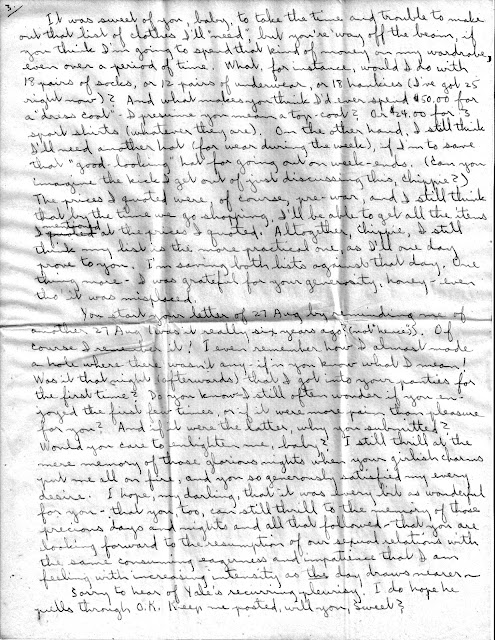 3.
It was sweet of you, baby, to take the time and trouble to make
out that list of clothes I'll "need", but you're way off the beam, if
you think I'm going to spend that kind of money on my wardrobe,
even over a period of time. What, for instance, would I do with
18 pairs of socks, or 12 pairs of underwear, or 18 hankies (I've got 25
right now)? And what makes you think I'd ever spend $50.00 for
a "dress coat" I presume you mean a top coat? Or $24.00 for 3
sport shirts (whatever they are). On the other hand, I still think
I'll need another hat (for wear during the week), if I'm to save
that "good looking" hat for going out on week-ends. (Can you
imagine the kick I get out of just discussing this, Chippie?)
The prices I quoted were, of course, pre-war, and I still think
that by the time we go shopping, I'll be able to get all the items
I at the prices I quoted. Altogether, Chippie, I still
think my list is the more practical one as I'll one day
prove to you. I'm saving both lists against that day. One
thing more - I was grateful for your generosity, honey - even
tho it was misplaced.
You start your letter of 27 Aug by reminding me of
another 27 Aug. Was it really six years ago? Of
course I remember it! I even remember how I almost made
a hole where there wasn't any - if you know what I mean!
Was it that night (afterwards) that I got into your panties for
the first time? Do you know I still often wonder if you en-
joyed the first few times, or if it were more pain than pleasure
for you? And if it were the latter, why you submitted?
Would you care to enlighten me, baby? I still thrill at the
mere memory of those glorious nights when your girlish charms
put me all on fire, and you so generously satisfied my every
desire. I hope, my darling, that it was every bit as wonderful
for you - that you, too, can still thrill to the memory of those
precious days and nights and all that followed - that you are
looking forward to the resumption of our sexual relations with
the same consuming eagerness and impatience that I am
feeling with increasing intensity as the day draws nearer -
Sorry to hear of Yale's recurring pleurisy. I do hope he
pulls through O.K. Keep me posted, will you, Sweet?